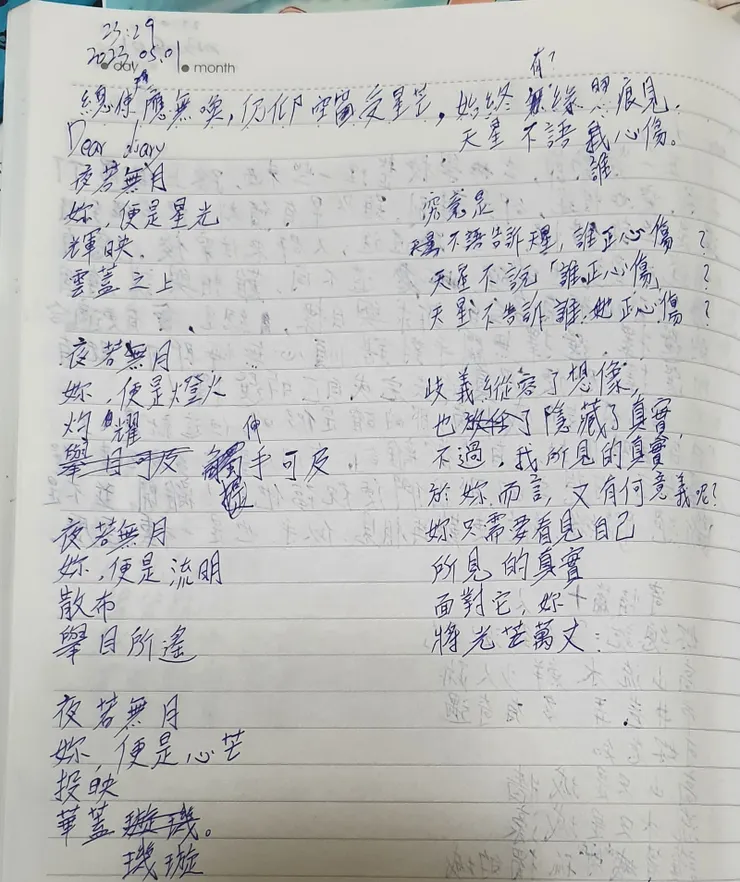 23:29
2023.05.01
day
month
有?
總使應無喚,仍仰空留受星芒,始終 緣 痕見。
Dear diary
天星 不語 我心傷。
誰
夜若無月
妳,便是星光
輝映
雲蓋之上
夜若無月
妳,便是燈火
灼耀
舉目可及 觸手可及
伸
夜若無月
妳,便是流明
散布
舉目所遙
夜若無月
妳,便是心芒
投映
華蓋璇璣。
璣璇
究竟是
不語告訴天星,誰正心傷 ?
天星不說「誰正心傷 ?
天星不告訴誰,她正心傷 ?
歧義縱容了想像,
也 了隱藏了真實,
不過,我所見的真實
於妳而言,又有何意義呢?
妳只需要看見自己
所見的真實
面對它,妳
將光芒萬丈: